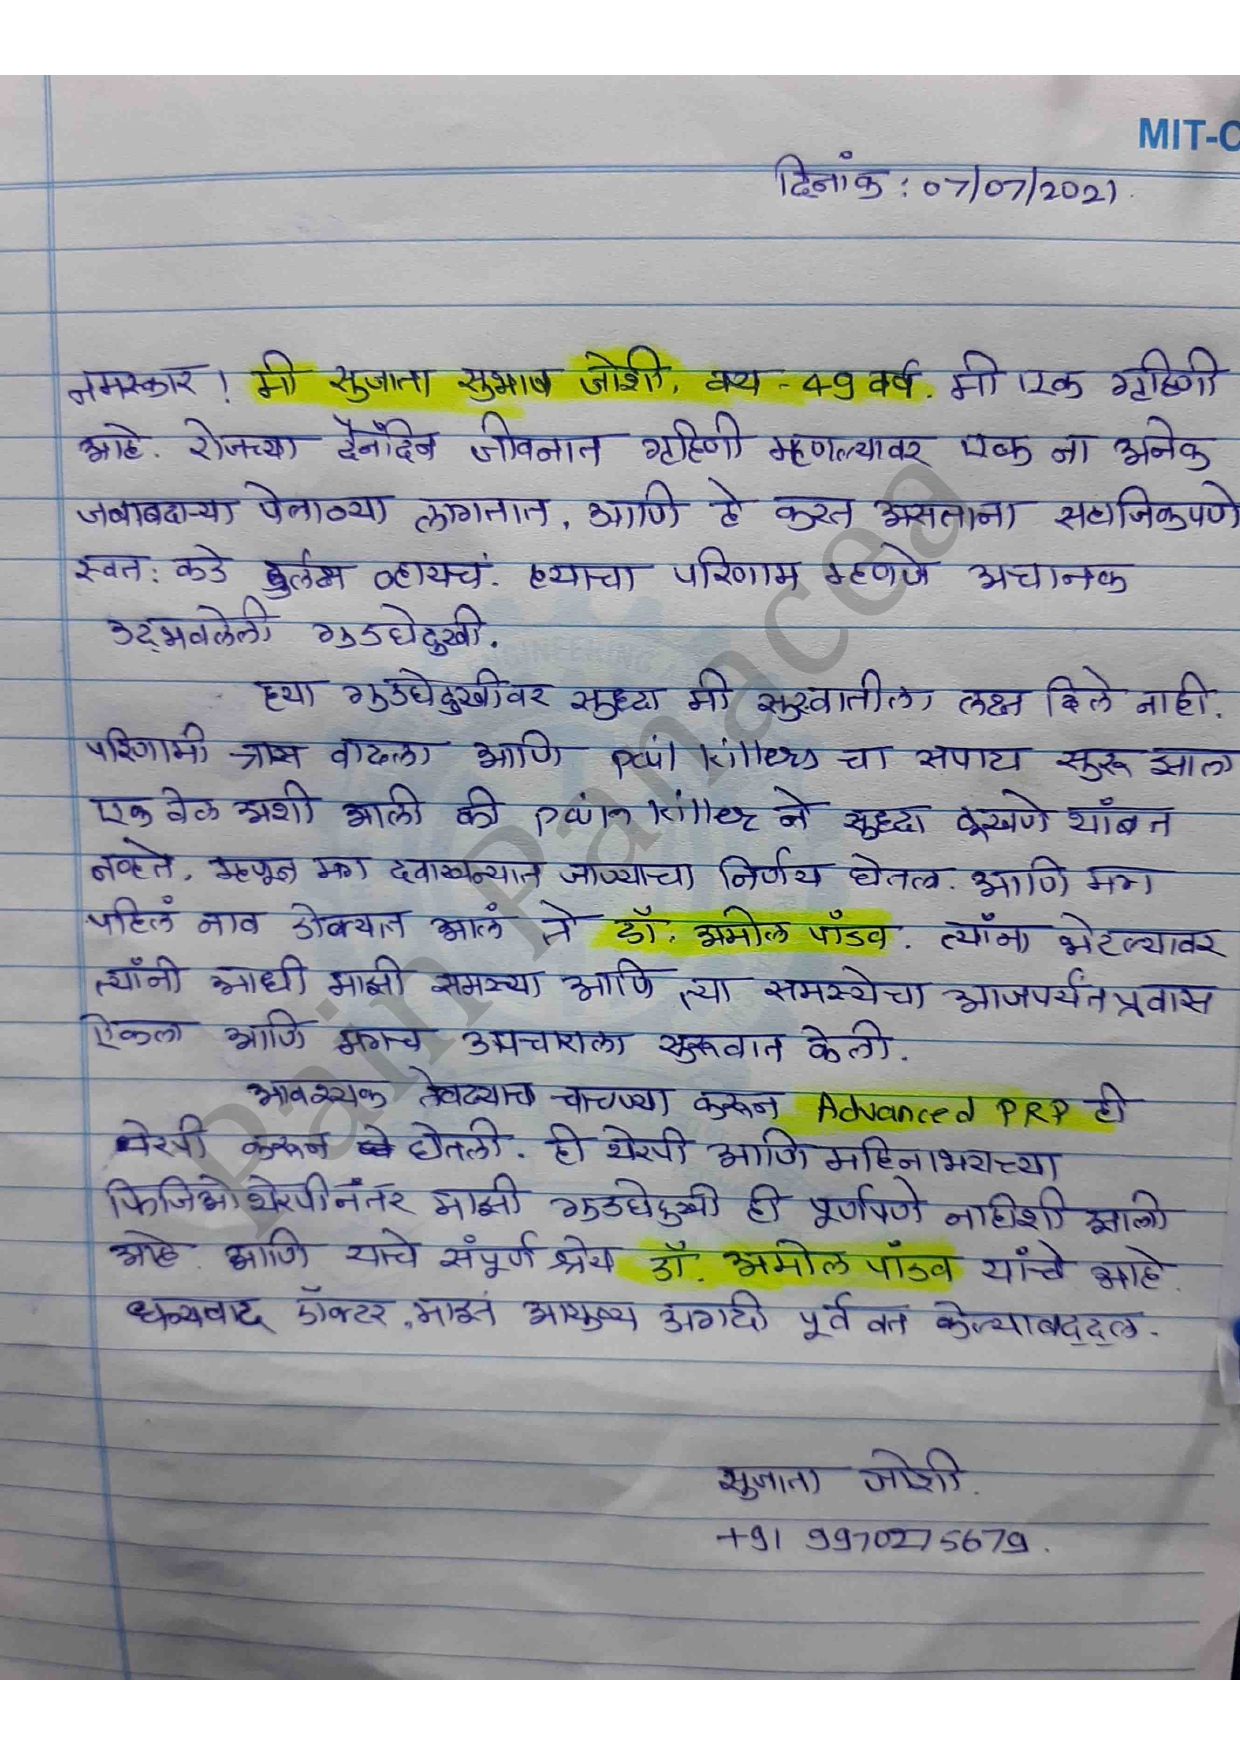 MIT-C
दिनांक : 07/07/2021.
नमस्कार! मी सुजाता सुभाष जोशी, वय - 49 वर्ष. मी एक गृहिणी
आहे. रोजच्या दैनंदिन जीवनात गृहिणी म्हणल्यावर एक ना अनेक
जबाबदाऱ्या पेलाव्या लागतात, आणि हे करत असताना सहाजिकपणे
स्वत: कडे दुर्लक्ष व्हायचं. ह्याचा परिणाम म्हणजे अचानक
उद्भवलेली गुडघेदुखी.
ह्या गुडघेदुखीवर सुध्दा मी सुरवातीला लक्ष दिले नाही.
परिणामी त्रास वाढला आणि pain killers चा सपाटा सुरू झाला
एक वेळ अशी आली की pain killer ने सुध्दा दुखणे थांबत
नव्हते, म्हणून मग दवाखान्यात जाण्याचा निर्णय घेतला. आणि मग
पहिलं नाव डोक्यात आलं ते डॉ. अमोल पांडव. त्यांना भेटल्यावर
त्यांनी आधी माझी समस्या आणि त्या समस्येचा आजपर्यंत प्रवास
ऐकला आणि मगच उपचाराला सुरूवात केली.
आवश्यक तेवढ्याच चाचण्या करून Advanced PRP ही
थेरपी करून घेतली. ही थेरपी आणि महिनाभराच्या
फिजिओथेरपीनंतर माझी गुडघेदुखी ही पूर्णपणे नाहीशी झाली
आहे. आणि याचे संपूर्ण श्रेय डॉ. अमोल पांडव यांचे आहे.
धन्यवाद डॉक्टर, माझं आयुष्य अगदी पूर्ववत केल्याबद्दल.
सुजाता जोशी.
+91 9970275679.
Pain Panacea